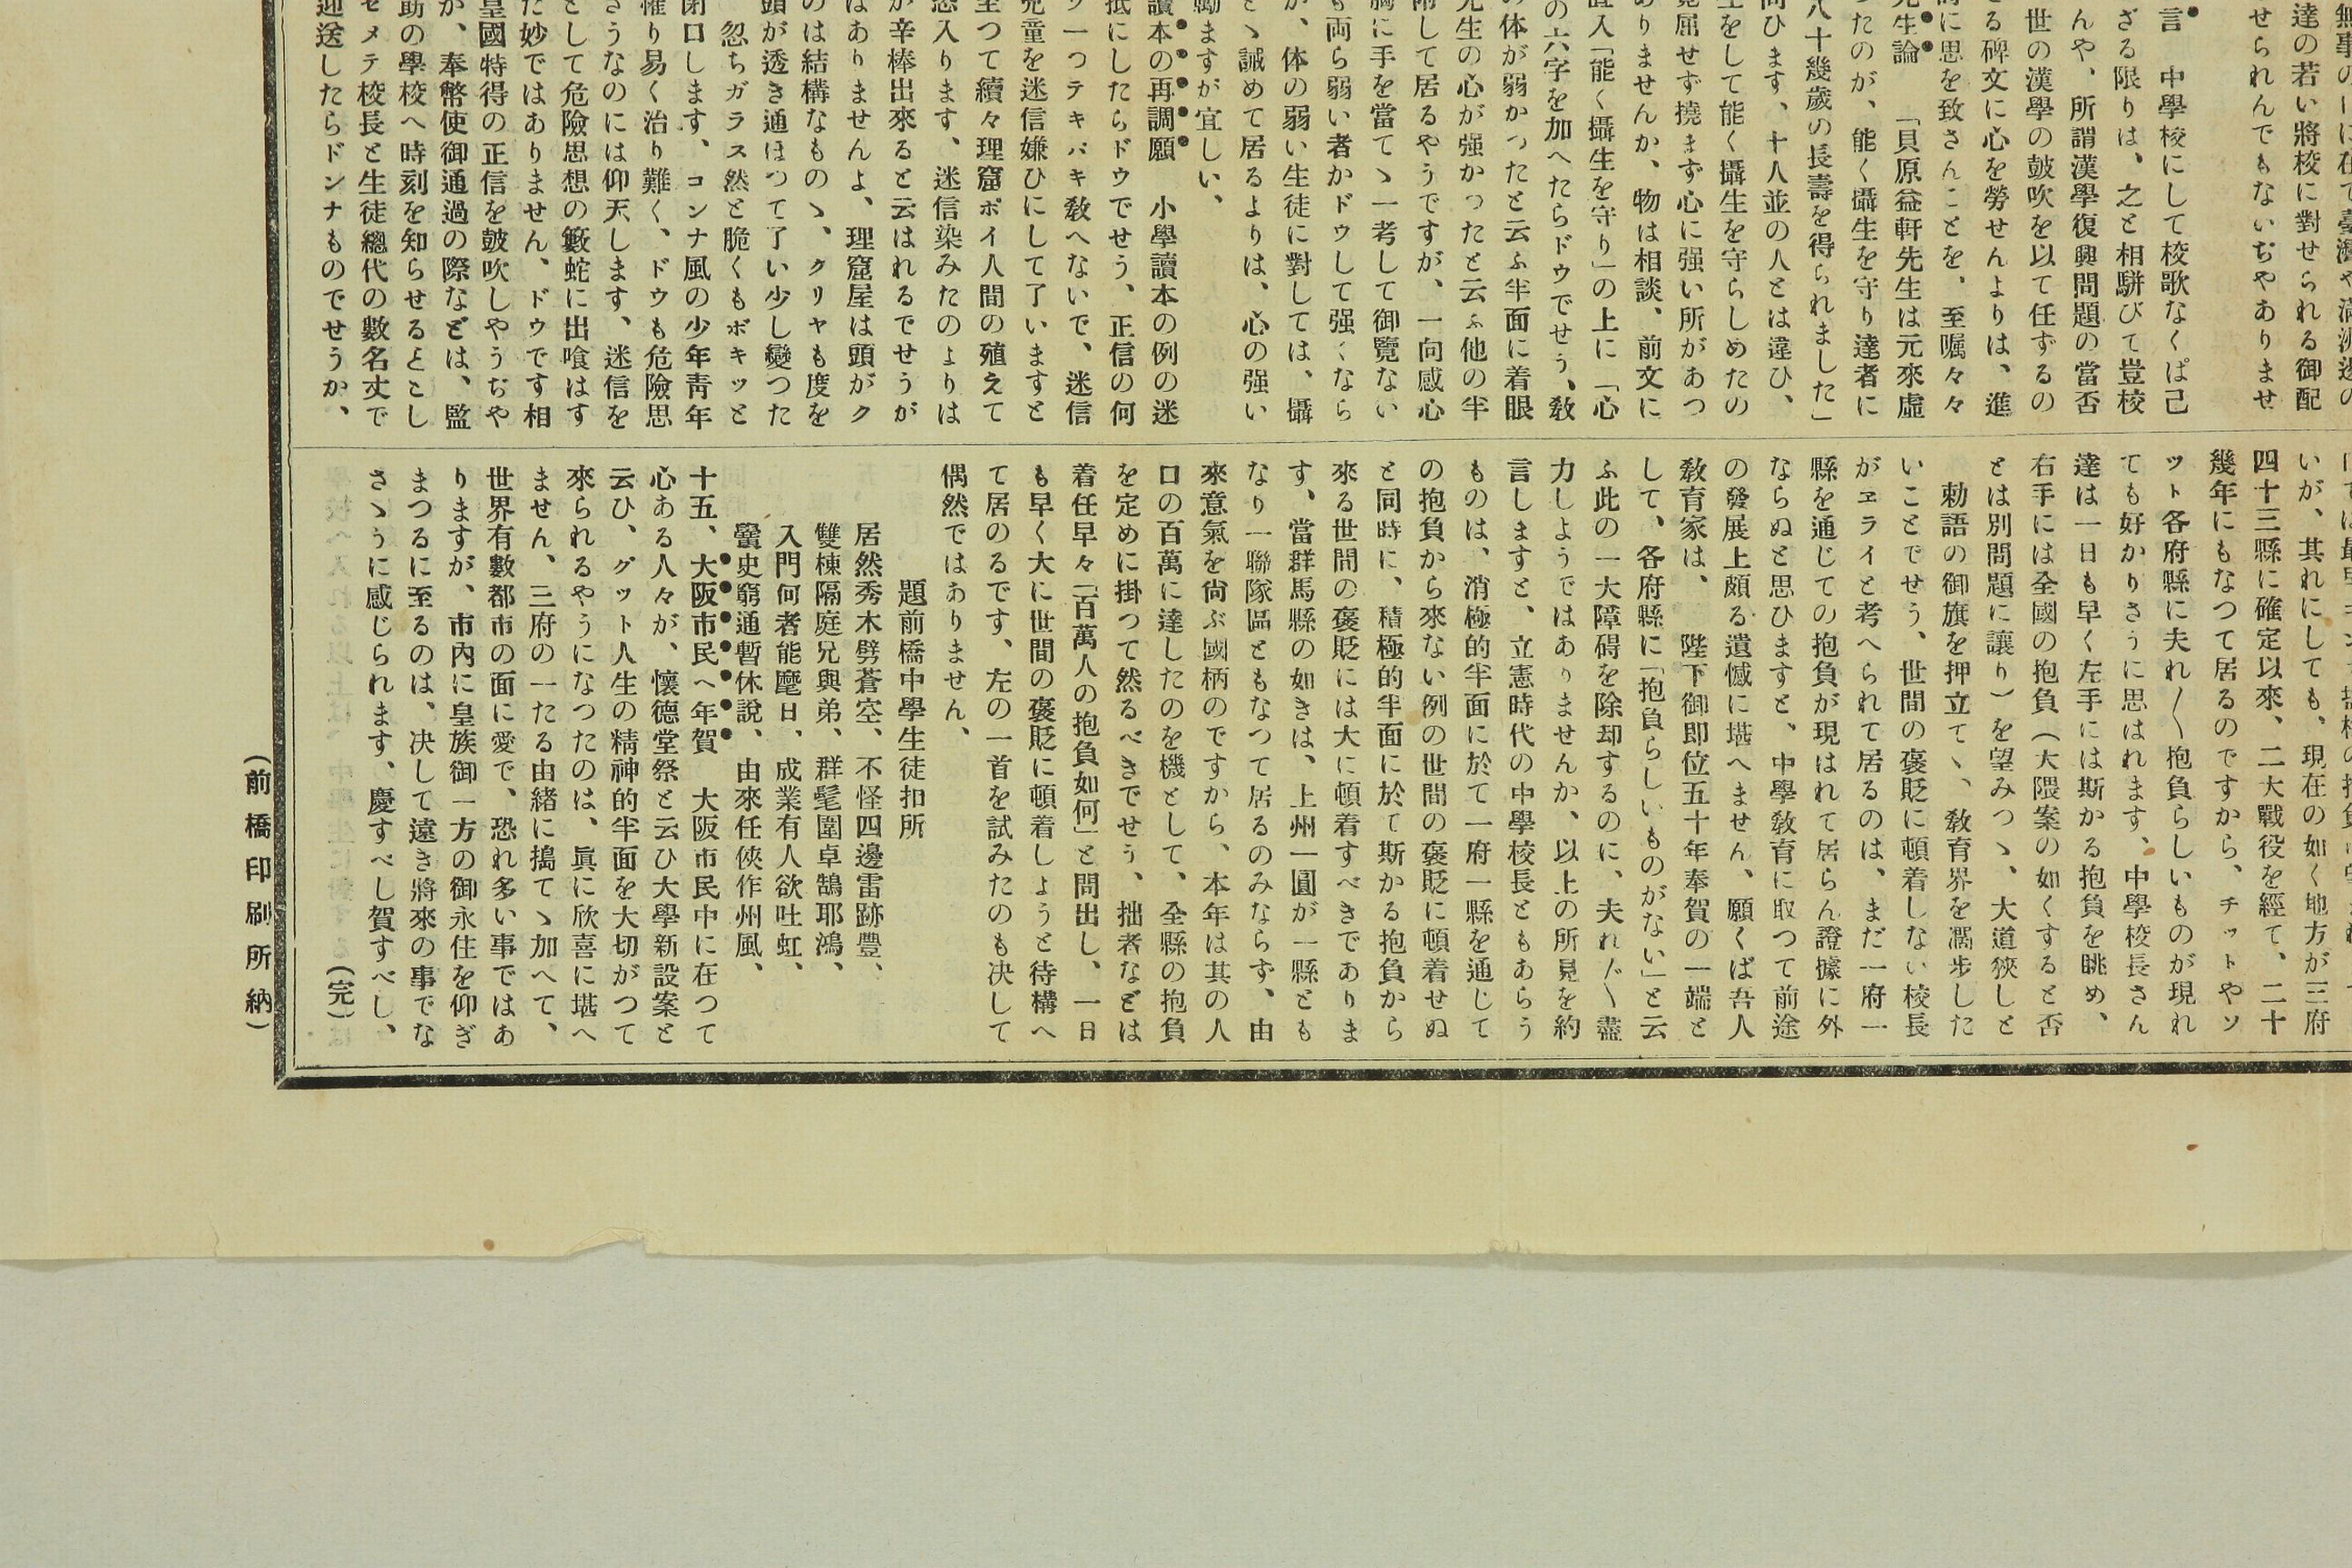 無事の日に在て臺灣や滿洲邊の
達の若い將校に對せられる御配
せられんでもないぢやありませ
言　中學校にして校歌なくば己
ざる限りは、之と相駢びて豈校
んや、所謂漢學復興問題の當否
世の漢學の皷吹を以て任ずるの
る碑文に心を勞せんよりは、進
に思を致さんことを、至嘱々々
先生論　「貝原益軒先生は元來虛
つたのが、能く攝生を守り達者に
八十幾歲の長壽を得られました」
問ひます、十人並の人とは違ひ、
生をして能く攝生を守らしめたの
屈せず撓まず心に强い所があつ
ありませんか、物は相談、前文に
直入「能く攝生を守り」の上に「心
の六字を加へたらドウでせう、敎
の体が弱かつたと云ふ半面に着眼
先生の心が强かつたと云ふ他の半
附して居るやうですが、一向感心
胸に手を當てヽ一考して御覽ない
も両ら弱い者かドウして强くなら
が、体の弱い生徒に對しては、攝
とヽ誡めて居るよりは、心の强い
勵ますが宜しい、
讀本の再調願　小學讀本の例の迷
抵にしたらドウでせう、正信の何
ソ一つテキパキ敎へないで、迷信
兒童を迷信嫌ひにして了いますと
至つて續々理窟ポイ人間の殖えて
恐入ります、迷信染みたのよりは
が辛棒出來ると云はれるでせうが
はありませんよ、理窟屋は頭がク
のは結構なものヽ、クリヤも度を
頭が透き通ほつて了い少し變つた
忽ちガラス然と脆くもポキッと
閉口します、コンナ風の少年靑年
罹り易く治り難く、ドウも危險思
さうなのには仰天します、迷信を
として危險思想の籔蛇に出喰はす
た妙ではありません、ドウです相
皇國特得の正信を皷吹しやうぢや
が、奉幣使御通過の際などは、監
筋の學校へ時刻を知らせるとこし
セメテ校長と生徒總代の數名丈で
迎送したらドンナものでせうか、
いが、其れにしても、現在の如く地方が三府
四十三縣に確定以來、二大戰役を經て、二十
幾年にもなつて居るのですから、チットやソ
ット各府縣に夫れ〳〵抱負らしいものが現れ
ても好かりさうに思はれます、中學校長さん
達は一日も早く左手には斯かる抱負を眺め、
右手には全國の抱負（大隈案の如くすると否
とは別問題に讓り）を望みつヽ、大道狹しと
勅語の御旗を押立てヽ、敎育界を濶步した
いことでせう、世間の褒貶に頓着しない校長
がヱライと考へられて居るのは、まだ一府一
縣を通じての抱負が現はれて居らん證據に外
ならぬと思ひますと、中學敎育に取つて前途
の發展上頗る遺憾に堪へません、願くば吾人
敎育家は、　陛下御即位五十年奉賀の一端と
して、各府縣に「抱負らしいものがない」と云
ふ此の一大障碍を除却するのに、夫れ〳〵盡
力しようではありませんか、以上の所見を約
言しますと、立憲時代の中學校長ともあらう
ものは、消極的半面に於て一府一縣を通じて
の抱負から來ない例の世間の褒貶に頓着せぬ
と同時に、積極的半面に於て斯かる抱負から
來る世間の褒貶には大に頓着すべきでありま
す、當群馬縣の如きは、上州一圓が一縣とも
なり一聯隊區ともなつて居るのみならず、由
來意氣を尙ぶ國柄のですから、本年は其の人
口の百萬に達したのを機として、全縣の抱負
を定めに掛つて然るべきでせう、拙者などは
着任早々「百萬人の抱負如何」と問出し、一日
も早く大に世間の褒貶に頓着しようと待構へ
て居のるです、左の一首を試みたのも决して
偶然ではありません、
題前橋中學生徒扣所
居然秀木劈蒼空、不怪四邊雷跡豐、
雙棟隔庭兄與弟、群髦圍卓鵠耶鴻、
入門何者能麾日、成業有人欲吐虹、
黌史窮通暫休說、由來任俠作州風、
十五、大阪市民へ年賀　大阪市民中に在つて
心ある人々が、懷德堂祭と云ひ大學新設案と
云ひ、グット人生の精神的半面を大切がつて
來られるやうになつたのは、眞に欣喜に堪へ
ません、三府の一たる由緖に搗てヽ加へて、
世界有數都市の面に愛で、恐れ多い事ではあ
りますが、市內に皇族御一方の御永住を仰ぎ
まつるに至るのは、决して遠き將來の事でな
さヽうに感じられます、慶すべし賀すべし、
（完）
（前橋印刷所納）